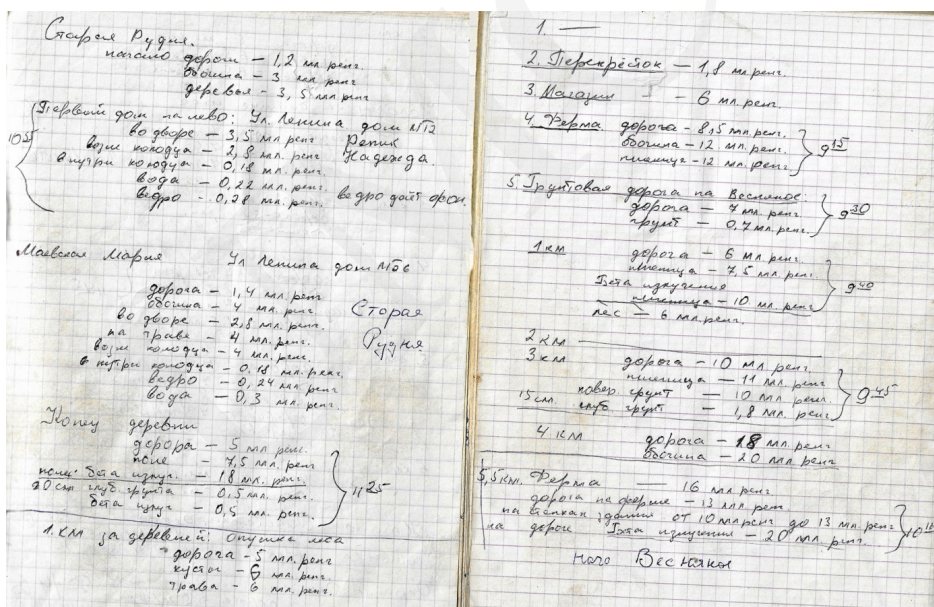 Старая Рудня.
начало дороги — 1,2 мл. ренг.
обочина — 3 мл ренг
деревья — 3,5 мл ренг
Первый дом налево: Ул. Ленина дом №12
во дворе — 3,5 мл. ренг Репик
возле колодца — 2,8 мл. ренг Надежда
внутри колодца — 0,18 мл. ренг.
вода — 0,22 мл. ренг.
ведро — 0,28 мл. ренг. ведро даёт фон.
10 55
Маевская Мария Ул Ленина дом №66
дорога — 1,4 мл. ренг
обочина — 4 мл. ренг
во дворе — 2,8 мл. ренг.
на траве — 4 мл. ренг.
возле колодца — 4 мл. ренг.
в нутри колодца — 0,18 мл. ренг.
ведро — 0,24 мл ренг
вода — 0,3 мл. ренг.
Старая
Рудня
Конец деревни
дорора — 5 мл ренг.
поле — 7,5 мл. ренг
поле: бета излуч. — 18 мл. ренг.
20 см глуб грунта — 0,5 мл. ренг.
бета излуч — 0,5 мл. ренг.
11 25
1. км за деревней: опушка леса
дорога — 5 мл. ренг
кусток — 6 мл. ренг
трава — 6 мл. ренг.
1. —
2. Перекрёсток — 1,8 мл. ренг.
3. Магазин — 6 мл. ренг.
4. Ферма. дорога — 8,5 мл. ренг.
обочина — 12 мл. ренг.
пшеница — 12 мл. ренг.
9 15
5. Грунтовая дорога на Весняное:
дорога — 7 мл. ренг
грунт — 0,7 мл. ренг.
9 30
1 км дорога — 6 мл. ренг.
пшеница — 7,5 мл. ренг.
Бета излучения
пшеница — 10 мл. ренг
лес — 6 мл. ренг.
9 40
2 км —
3 км дорога — 10 мл ренг
пшеница — 11 мл. ренг
повер. грунт — 10 мл. ренг.
15 см. глуб грунт — 1,8 мл. ренг
9 45
4 км дорога — 18 мл. ренг
обочина — 20 мл. ренг
5,5 км. Ферма — 16 мл. ренг
дорога на ферме — 13 мл. ренг
на стенках здания от 10 мл ренг до 13 мл. ренг
на дороге Бета излучения — 20 мл. ренг.
Весняны